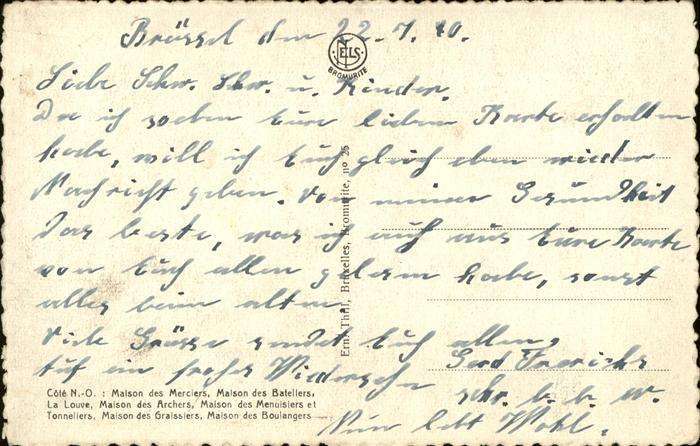 Brüssel den 22.7.40.
NELS
BROMURITE
Liebe Schw. Schw. u. Kinder.
Da ich soeben Eure lieben Karte erhalten
habe, will ich Euch gleich eben wieder
Nachricht geben. Von meiner Gesundheit
das beste, was ich auch aus Eure Karte
von Euch allen gelesen habe, sonst
alles beim alten.
Viele Grüsse sendet Euch allen,
Gerd Frerichs
Auf ein frohes Wiedersehn
schr. b. b. w.
Nun lebt Wohl.
Ern. Thill, Bruxelles, Bromurite, no 25
Côté N.-O. : Maison des Merciers, Maison des Bateliers,
La Louve, Maison des Archers, Maison des Menuisiers et
Tonneliers, Maison des Graissiers, Maison des Boulangers